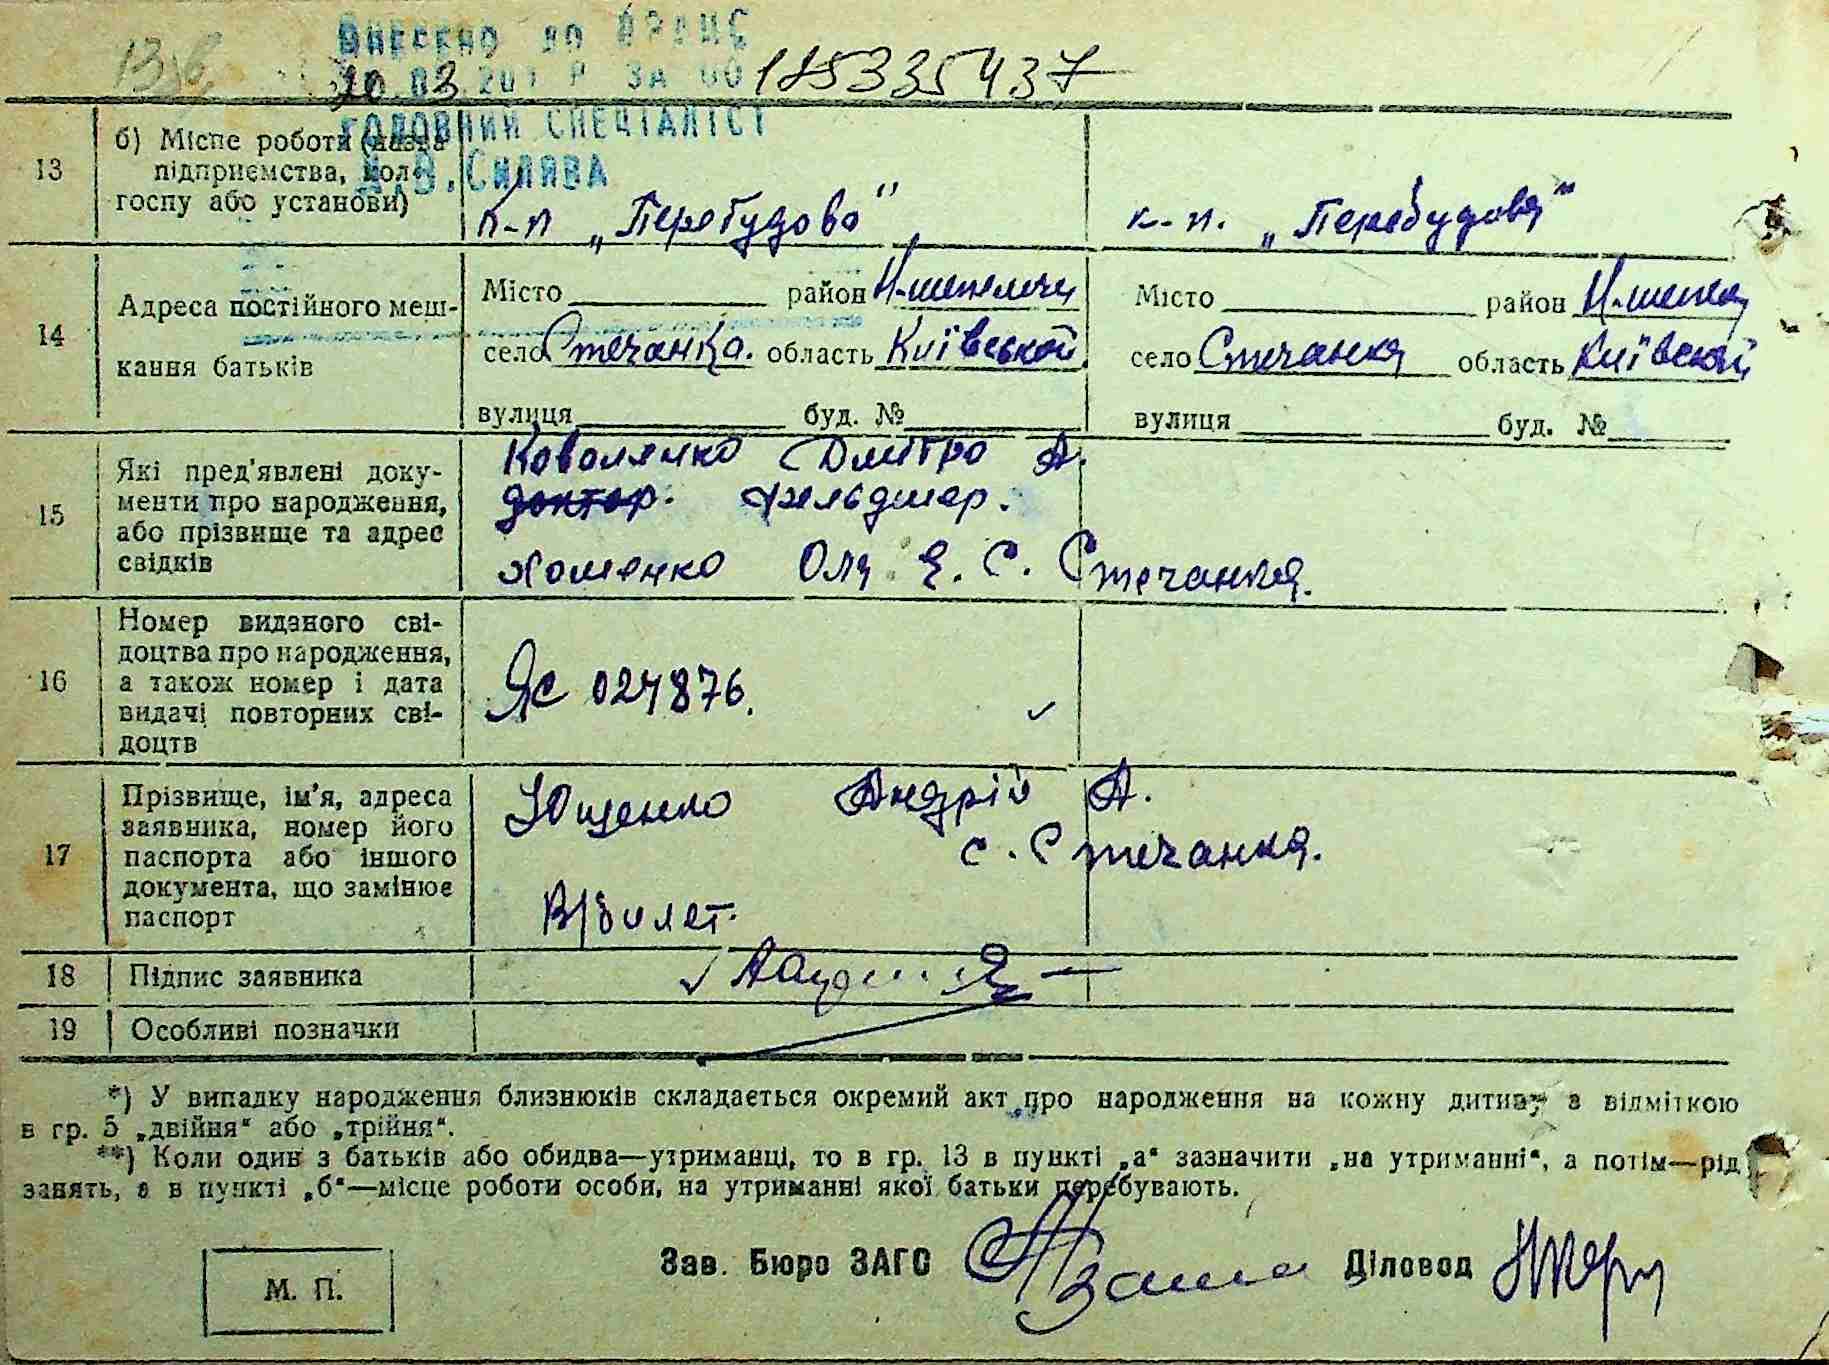 Внесено до ДРАЦС
20.03.201 Р ЗА 00 185335437
ГОЛОВНИЙ СПЕЦІАЛІСТ
13 б) Місце роботи (назва
підприємства, кол-
госпу або установи)
к-п „Перебудова" к-п. „Перебудова"
Місто район Н-шепеличи Місто район Н-шепел
14 Адреса постійного меш-
село Стечанка. область Київської село Стечанка область Київской
кання батьків
вулиця буд. № вулиця буд. №
15 Які пред'явлені доку-
менти про народження,
або прізвище та адрес
свідків
Коваленко Дмитро А.
доктор. фельдшер.
Хоменко Оля Є. С. Стечанка.
16 Номер виданого сві-
доцтва про народження,
а також номер і дата
видачі повторних сві-
доцтв
ЯС 024876.
17 Прізвище, ім'я, адреса
заявника, номер його
паспорта або іншого
документа, що замінює
паспорт
Ющенко Андрій А.
с. Стечанка.
В/билет.
18 Підпис заявника
19 Особливі позначки
*) У випадку народження близнюків складається окремий акт про народження на кожну дитину з відміткою
в гр. 5 „двійня" або „трійня".
**) Коли один з батьків або обидва—утриманці, то в гр. 13 в пункті „а" зазначити „на утриманні", а потім—рід
занять, а в пункті „б"—місце роботи особи, на утриманні якої батьки перебувають.
Зав. Бюро ЗАГС Діловод
М. П.